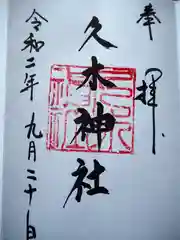 奉拝
久木神社
令和二年九月二十日